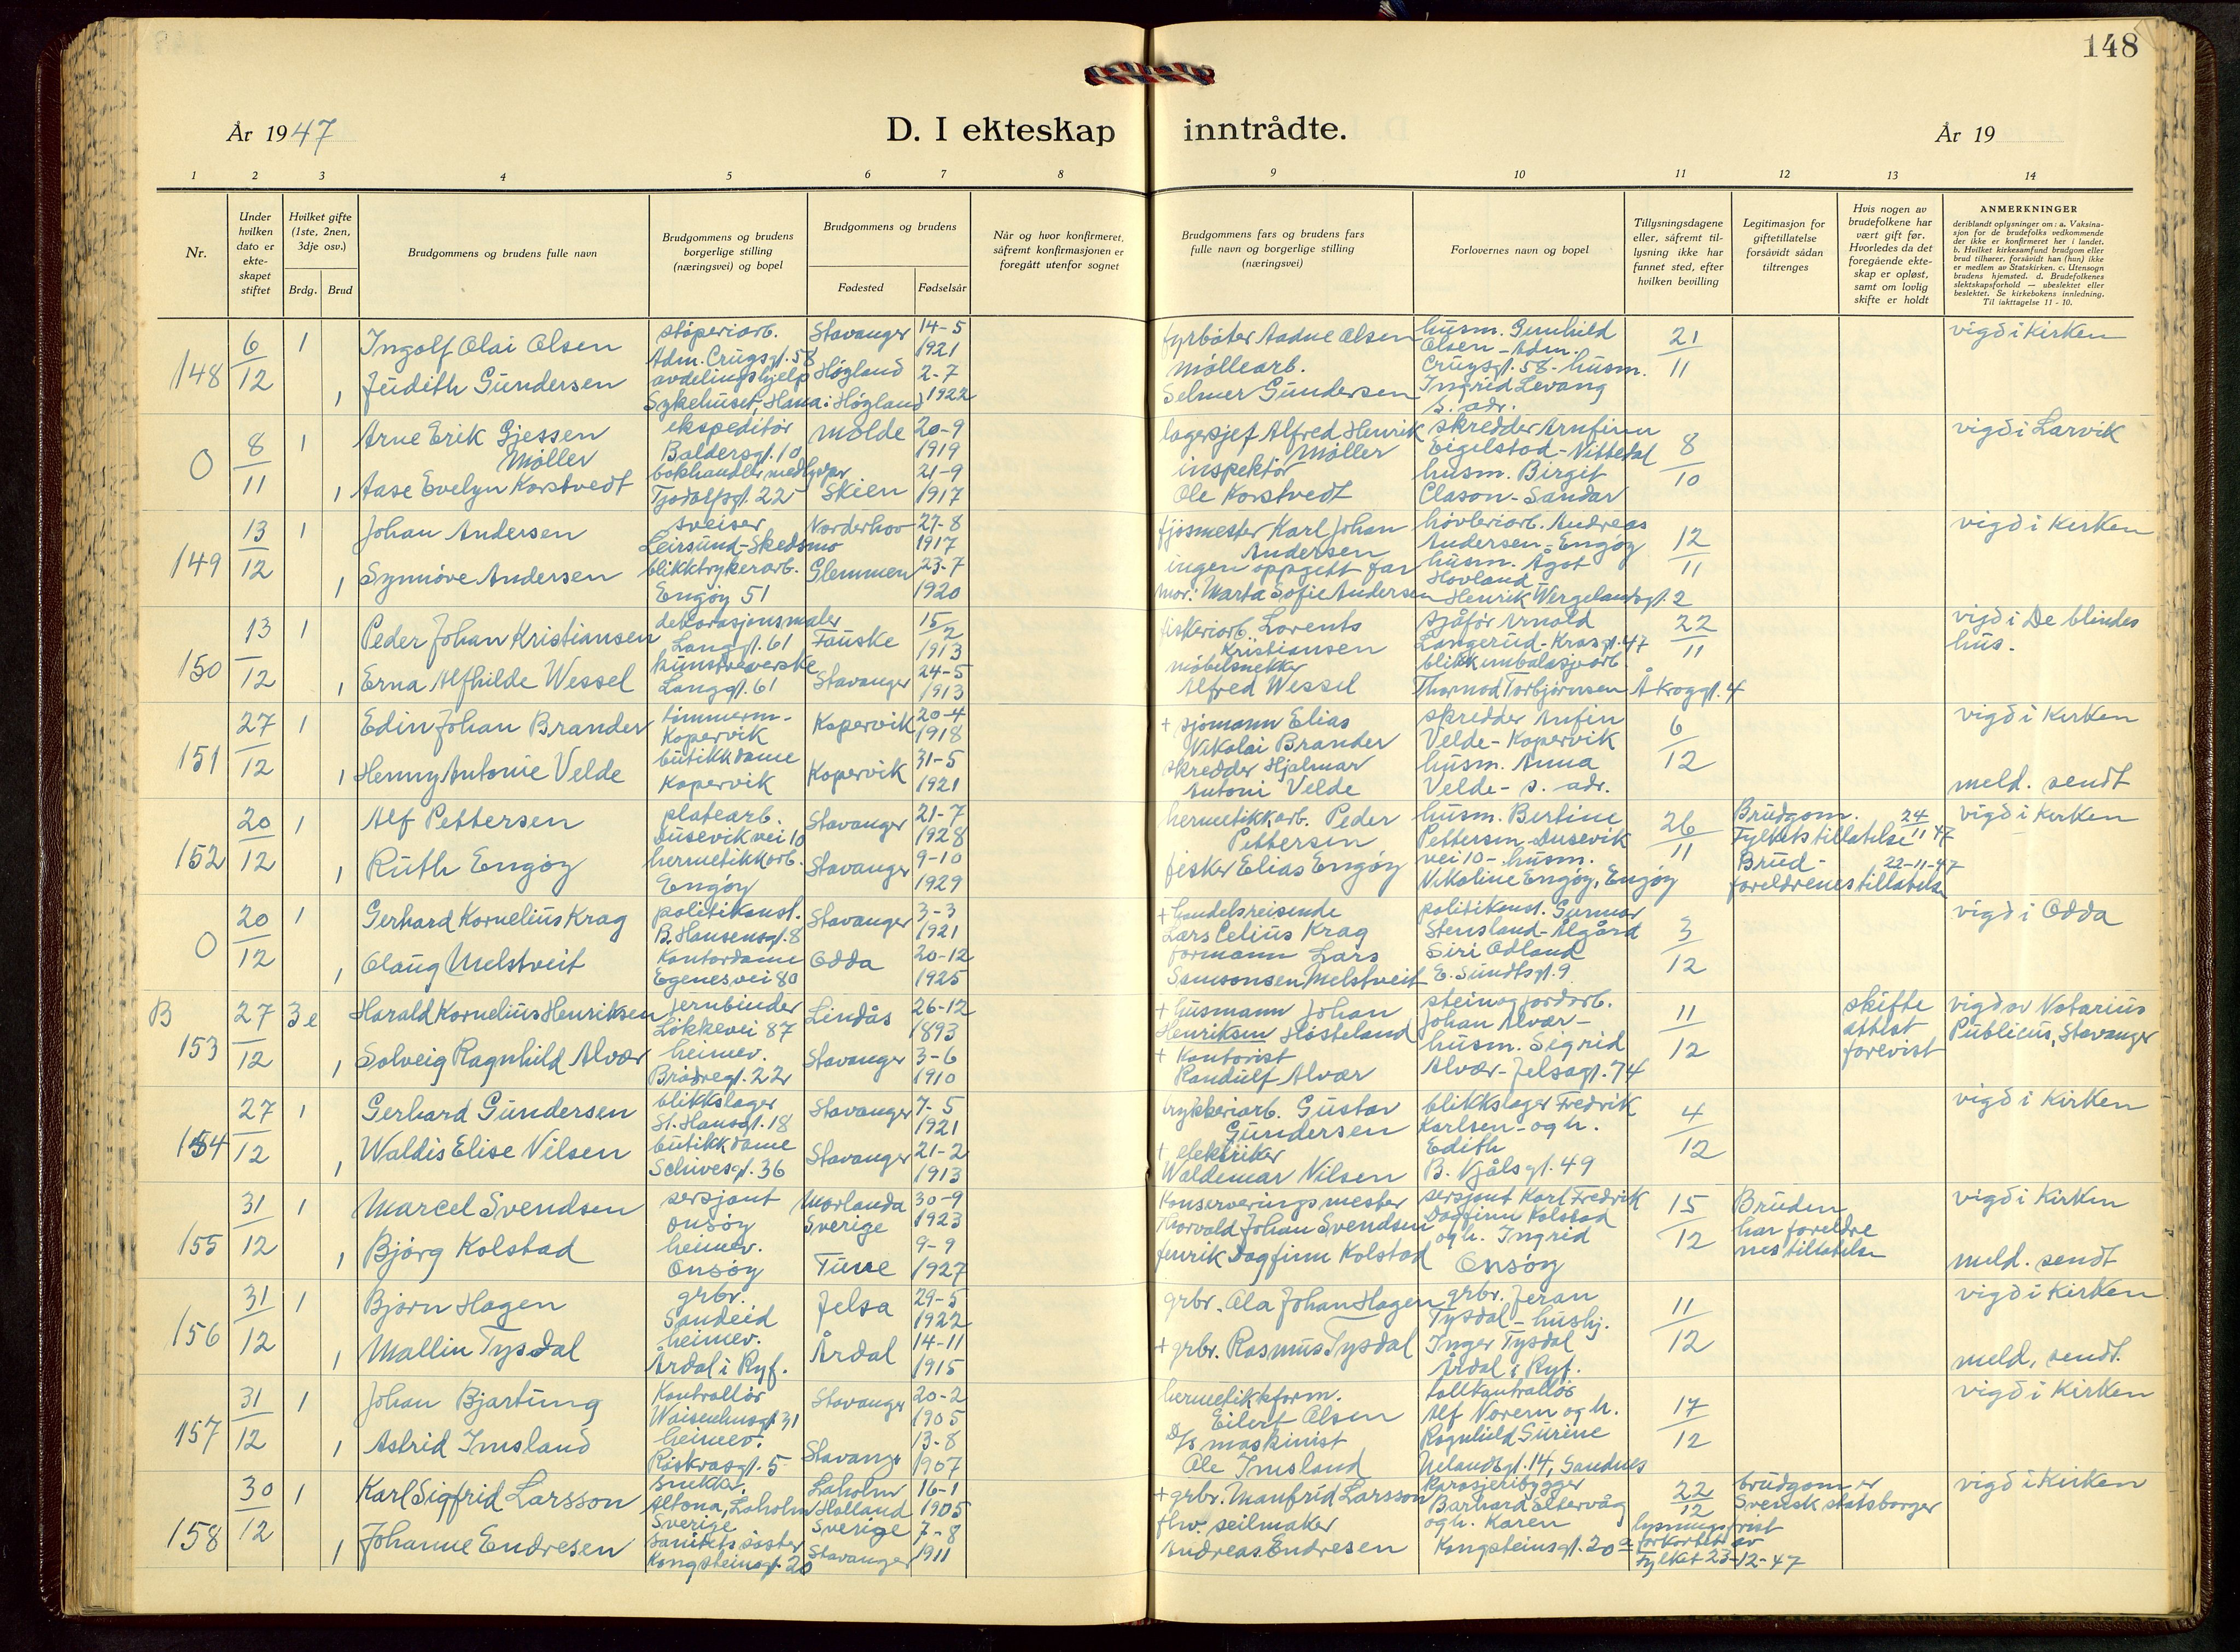 148
År 1947
D. I ekteskap inntrådte.
År 19
1 2 3 4 5 6 7 8 9 10 11 12 13 14
Nr.
Under hvilken dato er ekte-skapet stiftet
Hvilket gifte (1ste, 2nen, 3dje osv.)
Brdg. Brud
Brudgommens og brudens fulle navn
Brudgommens og brudens borgerlige stilling (næringsvei) og bopel
Brudgommens og brudens
Fødested Fødselsår
Når og hvor konfirmeret, såfremt konfirmasjonen er foregått utenfor sognet
Brudgommens fars og brudens fars fulle navn og borgerlige stilling (næringsvei)
Forlovernes navn og bopel
Tillysningsdagene eller, såfremt til-lysning ikke har funnet sted, efter hvilken bevilling
Legitimasjon for giftetillatelse forsåvidt sådan tiltrenges
Hvis nogen av brudefolkene har vært gift før. Hvorledes da det foregående ekte-skap er opløst, samt om lovlig skifte er holdt
ANMERKNINGER
deriblandt oplysninger om: a. Vaksina-sjon for de brudefolks vedkommende der ikke er konfirmeret her i landet. b. Hvilket kirkesamfund brudgom eller brud tilhører, forsåvidt han (hun) ikke er medlem av Statskirken. c. Utensogn brudens hjemsted. d. Brudefolkenes slektskapsforhold — ubeslektet eller beslektet. Se kirkebokens innledning. Til iakttagelse 11 - 10.
148 6/12 1 Ingolf Olai Olsen støperiarb. Adm. Crugsgt. 58 Stavanger 14-5 1921 fyrbøter Aadne Olsen husm. Gunhild Olsen - Adm. Crugsgt. 58 - husm. 21/11 vigd i Kirken
1 Judith Gundersen avdelingshjelp Sykehuset, Hana i Høgland Høgland 2-7 1922 møllearb. Selmer Gundersen Ingrid Levang s. adr.
0 8/11 1 Arne Erik Gjessen Møller ekspeditør Baldersgt. 10 Molde 20-9 1919 lagersjef Alfred Henrik Møller skredder Arnfinn Eigelstad - Nittedal 8/10 vigd i Larvik
1 Aase Evelyn Korstvedt Tjodolfsgt. 22 Skien 21-9 1917 inspektør Ole Korstvedt husm. Birgit Clason - Sandar
149 13/12 1 Johan Andersen sveiser Leirsund - Skedsmo Norderhov 27-8 1917 fjøsmester Karl Johan Andersen høvleriarb. Andreas Andersen - Engøy 12/11 vigd i Kirken
1 Synnøve Andersen blikktrykerarb. Engøy 51 Glemmen 23-7 1920 ingen oppgitt far mor: Marta Sofie Andersen husm. Ågot Hovland - Henrik Wergelandsgt. 2
150 13/12 1 Peder Johan Kristiansen dekorasjonsmaler Langgt. 61 Fauske 15/2 1913 fiskeriarb. Lorents Kristiansen sjåfør Arnold Langerud - Kragsgt. 47 22/11 vigd i De blindes hus.
1 Erna Alfhilde Wessel kunstveverske Langgt. 61 Stavanger 24-5 1913 møbelsnekker Alfred Wessel blikkembalasjearb. Thormod Torbjørnsen Åkroggt. 4
151 27/12 1 Edin Johan Brander tømmerm. - Kopervik Kopervik 20-4 1918 + sjømann Elias Nikolai Brander skredder Anfin Velde - Kopervik 6/12 vigd i Kirken
1 Henny Antonie Velde butikkdame Kopervik Kopervik 31-5 1921 skredder Hjalmar Antoni Velde husm. Anna Velde - s. adr. meld. sendt
152 20/12 1 Alf Pettersen platearb. Dusevikvei 10 Stavanger 21-7 1928 hermetikkarb. Peder Pettersen husm. Bertine Pettersen - Dusevik vei 10 - husm. 26/11 Brudgom. 24/11 47 Fylkets tillatelse vigd i Kirken
1 Ruth Engøy hermetikkarb. Engøy Stavanger 9-10 1929 fisker Elias Engøy Nikoline Engøy, Engøy Brud - 22-11-47 foreldrenes tillatelse
0 20/12 1 Gerhard Kornelius Krag politikonst. B. Hansensgt. 8 Stavanger 3-3 1921 + handelsreisende Lars Celius Krag politikonst. Gunnar Stensland - Ålgård 3/12 vigd i Odda
1 Olaug Melstveit Kontordame Egenesvei 80 Odda 20-12 1925 formann Lars Samsonsen Melstveit Siri Odland E. Sundtsgt. 9
B 153 27/12 3e Harald Kornelius Henriksen jernbinder Løkkevei 87 Lindås 26-12 1893 + husmann Johan Henriksen Høsteland stein og jordarb. Johan Alvær - 11/12 skifte attest forevist vigd av Notarius Publicus, Stavanger
1 Solveig Ragnhild Alvær heimev. Brødregt. 22 Stavanger 3-6 1910 + Kontorist Randulf Alvær husm. Segrid Alvær - Jelsagt. 74
154 27/12 1 Gerhard Gundersen blikkslager St. Hansgt. 18 Stavanger 7-5 1921 trykkeriarb. Gustav Gundersen blikkslager Fredrik Karlsen - og h. 4/12 vigd i Kirken
1 Waldis Elise Nilsen butikkdame Schivesgt. 36 Stavanger 21-2 1913 + elektriker Waldemar Nilsen Edith B. Njålsgt. 49
155 31/12 1 Marcel Svendsen sersjant Onsøy Morlanda Sverige 30-9 1923 Konserveringsmester Thorvald Johan Svendsen sersjant Karl Fredrik Dagfinn Kolstad 15/12 Bruden har foreldrenes tillatelse vigd i Kirken
1 Bjørg Kolstad heimev. Onsøy Tune 9-9 1927 fenrik Dagfinn Kolstad og h. Ingrid Onsøy meld. sendt
156 31/12 1 Bjørn Hagen grbr. Sandeid Jelsa 29-5 1922 grbr. Ola Johan Hagen grbr. Jeran Tysdal - hushj. 11/12 vigd i Kirken
1 Mallin Tysdal heimev. Årdal i Ryf. Årdal 14-11 1915 + grbr. Rasmus Tysdal Inger Tysdal Årdal i Ryf. meld. sendt.
157 31/12 1 Johan Bjartung Kontrollør Waisenhusgt. 31 Stavanger 20-2 1905 hermetikkform. Eilert Olsen tollkontrollør Alf Norern og h. 17/12 vigd i Kirken
1 Astrid Imsland heimev. Røskvasgt. 5 Stavanger 13-8 1907 D/S maskinist Ole Imsland Ragnhild Surine Uelandsgt. 14, Sandnes
158 30/12 1 Karl Sigfrid Larsson snekker Altona, Laholm Sverige Laholm Halland Sverige 16-1 1905 + grbr. Manfrid Larsson Karosjeribygger Barhard Eltervåg 22/12 brudgom er Svensk statsborger vigd i Kirken
1 Johanne Endresen Sanitetssøster Kongsteinsgt. 20 Stavanger 7-8 1911 fhv. seilmaker Andreas Endresen og h. Karen Kongsteinsgt. 20a lysningsfrist forkortet av Fylket 23-12-47